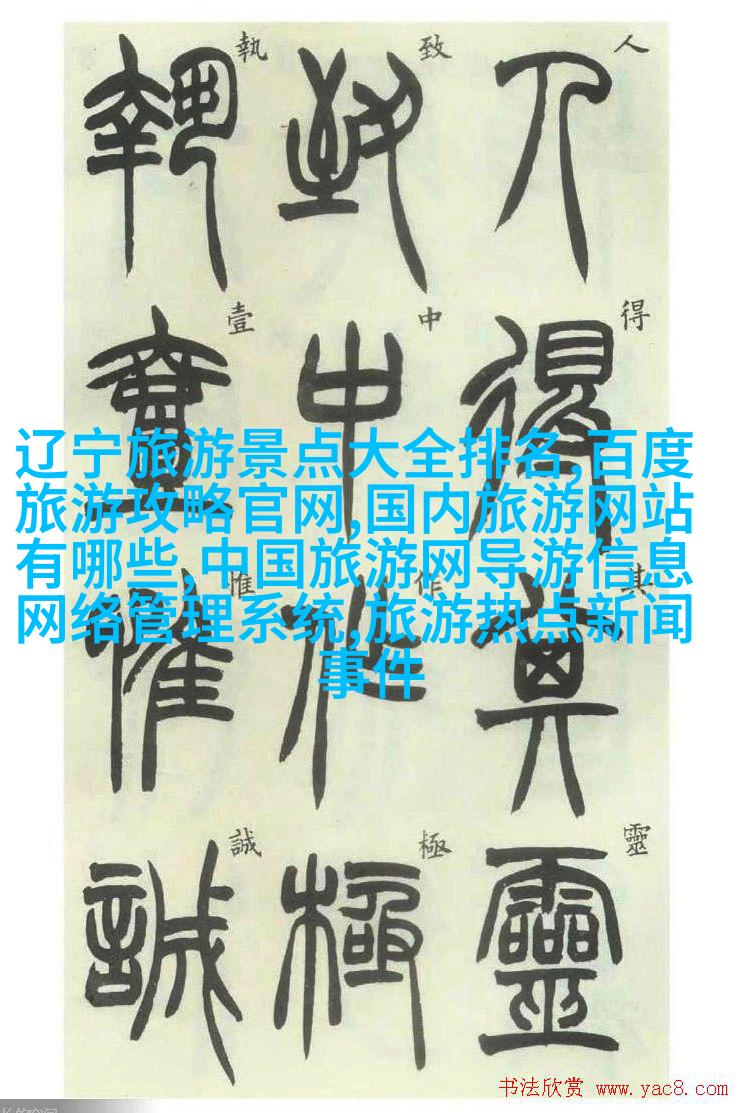 人得其靈
人得其靈
致中作極
致中作極
執壹惟誠
執壹惟誠
辽宁旅游景点大全排名,百度
旅游攻略官网,国内旅游网站
有哪些,中国旅游网导游信息
网络管理系统,旅游热点新闻
事件
书法欣赏 www.yac8.com